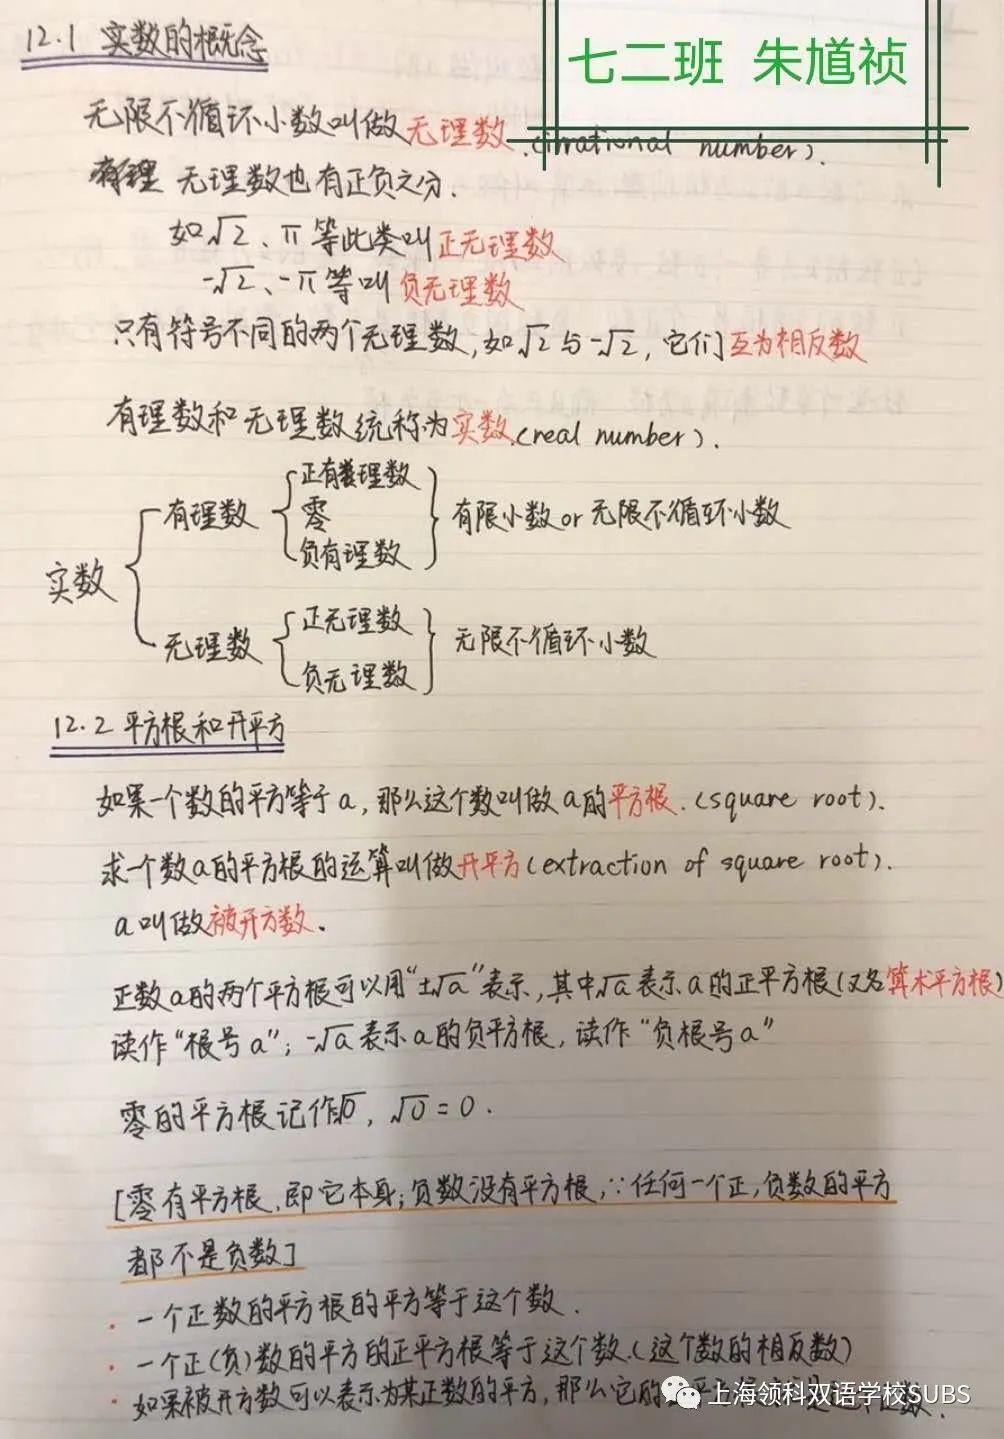 12.1 实数的概念
七二班 朱馗祯
无限不循环小数叫做无理数.(irrational number).
无理数也有正负之分.
如√2、π等此类叫正无理数
-√2、-π等叫负无理数
只有符号不同的两个无理数,如√2与-√2,它们互为相反数
有理数和无理数统称为实数.(real number).
正有理数
有理数 零 有限小数or无限不循环小数
负有理数
实数
正无理数
无理数 无限不循环小数
负无理数
12.2 平方根和开平方
如果一个数的平方等于a,那么这个数叫做a的平方根.(square root).
求一个数a的平方根的运算叫做开平方(extraction of square root).
a叫做被开方数.
正数a的两个平方根可以用“±√a”表示,其中√a表示a的正平方根(又名算术平方根)
读作“根号a”;-√a表示a的负平方根,读作“负根号a”
零的平方根记作√0,√0=0.
[零有平方根,即它本身;负数没有平方根,∵任何一个正,负数的平方
都不是负数]
· 一个正数的平方根的平方等于这个数.
· 一个正(负)数的平方的正平方根等于这个数.(这个数的相反数)
· 如果被开方数可以表示为某正数的平方,那么它的 数.
上海领科双语学校SUBS